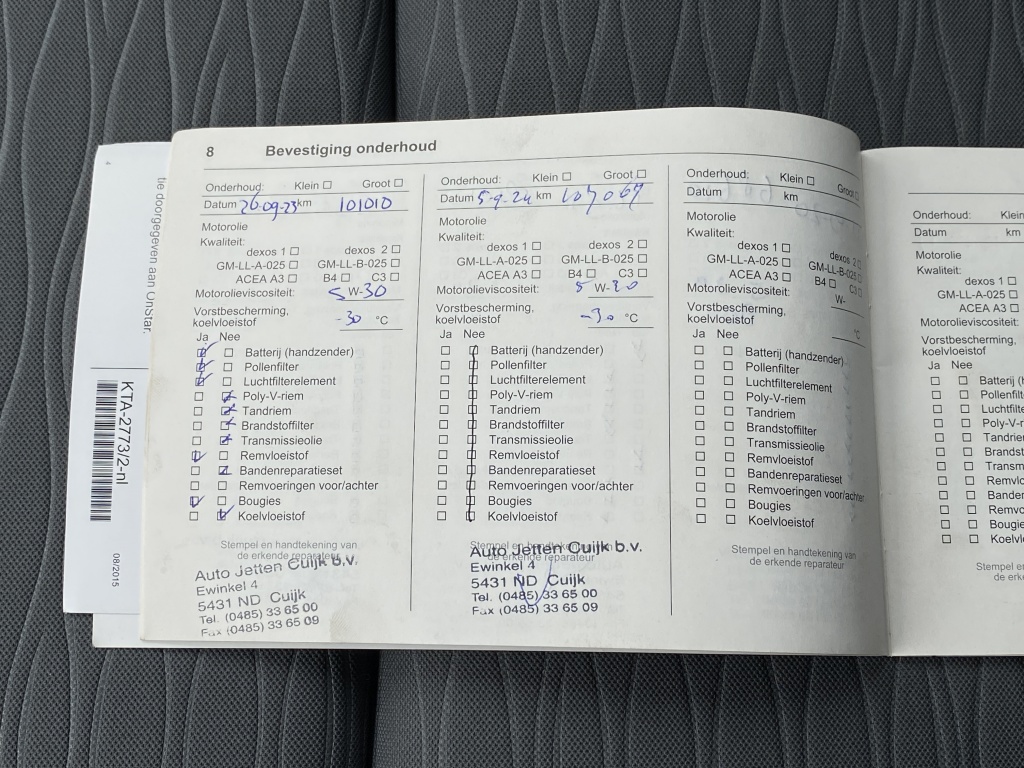 8 Bevestiging onderhoud
Onderhoud: Klein Groot
Datum 26-09-23 km 101010
Motorolie
Kwaliteit:
dexos 1 dexos 2
GM-LL-A-025 GM-LL-B-025
ACEA A3 B4 C3
Motorolieviscositeit: 5 W-30
Vorstbescherming,
koelvloeistof -30 °C
Ja Nee
Batterij (handzender)
Pollenfilter
Luchtfilterelement
Poly-V-riem
Tandriem
Brandstoffilter
Transmissieolie
Remvloeistof
Bandenreparatieset
Remvoeringen voor/achter
Bougies
Koelvloeistof
Stempel en handtekening van
de erkende reparateur
Auto Jetten Cuijk b.v.
Ewinkel 4
5431 ND Cuijk
Tel. (0485) 33 65 00
Fax (0485) 33 65 09
Onderhoud: Klein Groot
Datum 5-9-24 km 107069
Motorolie
Kwaliteit:
dexos 1 dexos 2
GM-LL-A-025 GM-LL-B-025
ACEA A3 B4 C3
Motorolieviscositeit: 5 W-
Vorstbescherming,
koelvloeistof -30 °C
Ja Nee
Batterij (handzender)
Pollenfilter
Luchtfilterelement
Poly-V-riem
Tandriem
Brandstoffilter
Transmissieolie
Remvloeistof
Bandenreparatieset
Remvoeringen voor/achter
Bougies
Koelvloeistof
Stempel en handtekening van
de erkende reparateur
Auto Jetten Cuijk b.v.
Ewinkel 4
5431 ND Cuijk
Tel. (0485) 33 65 00
Fax (0485) 33 65 09
Onderhoud: Klein Groot
Datum km
Motorolie
Kwaliteit:
dexos 1 dexos 2
GM-LL-A-025 GM-LL-B-025
ACEA A3 B4 C3
Motorolieviscositeit: W-
Vorstbescherming,
koelvloeistof °C
Ja Nee
Batterij (handzender)
Pollenfilter
Luchtfilterelement
Poly-V-riem
Tandriem
Brandstoffilter
Transmissieolie
Remvloeistof
Bandenreparatieset
Remvoeringen voor/achter
Bougies
Koelvloeistof
Stempel en handtekening van
de erkende reparateur
Onderhoud: Klein
Datum km
Motorolie
Kwaliteit:
dexos 1
GM-LL-A-025
ACEA A3
Motorolieviscositeit:
Vorstbescherming,
koelvloeistof
Ja Nee
Batterij (h
Pollenfilte
Luchtfilte
Poly-V-r
Tandrier
Brandst
Transm
Remvlo
Bander
Remvo
Bougie
Koelvl
Stempel e
de erk
tie doorgegeven aan OnStar.
KTA-2773/2-nl
08/2015